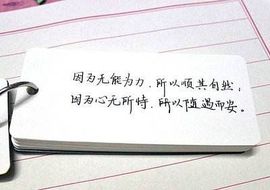 因为无能为力，所以顺其自然，
因为心无所恃，所以随遇而安。